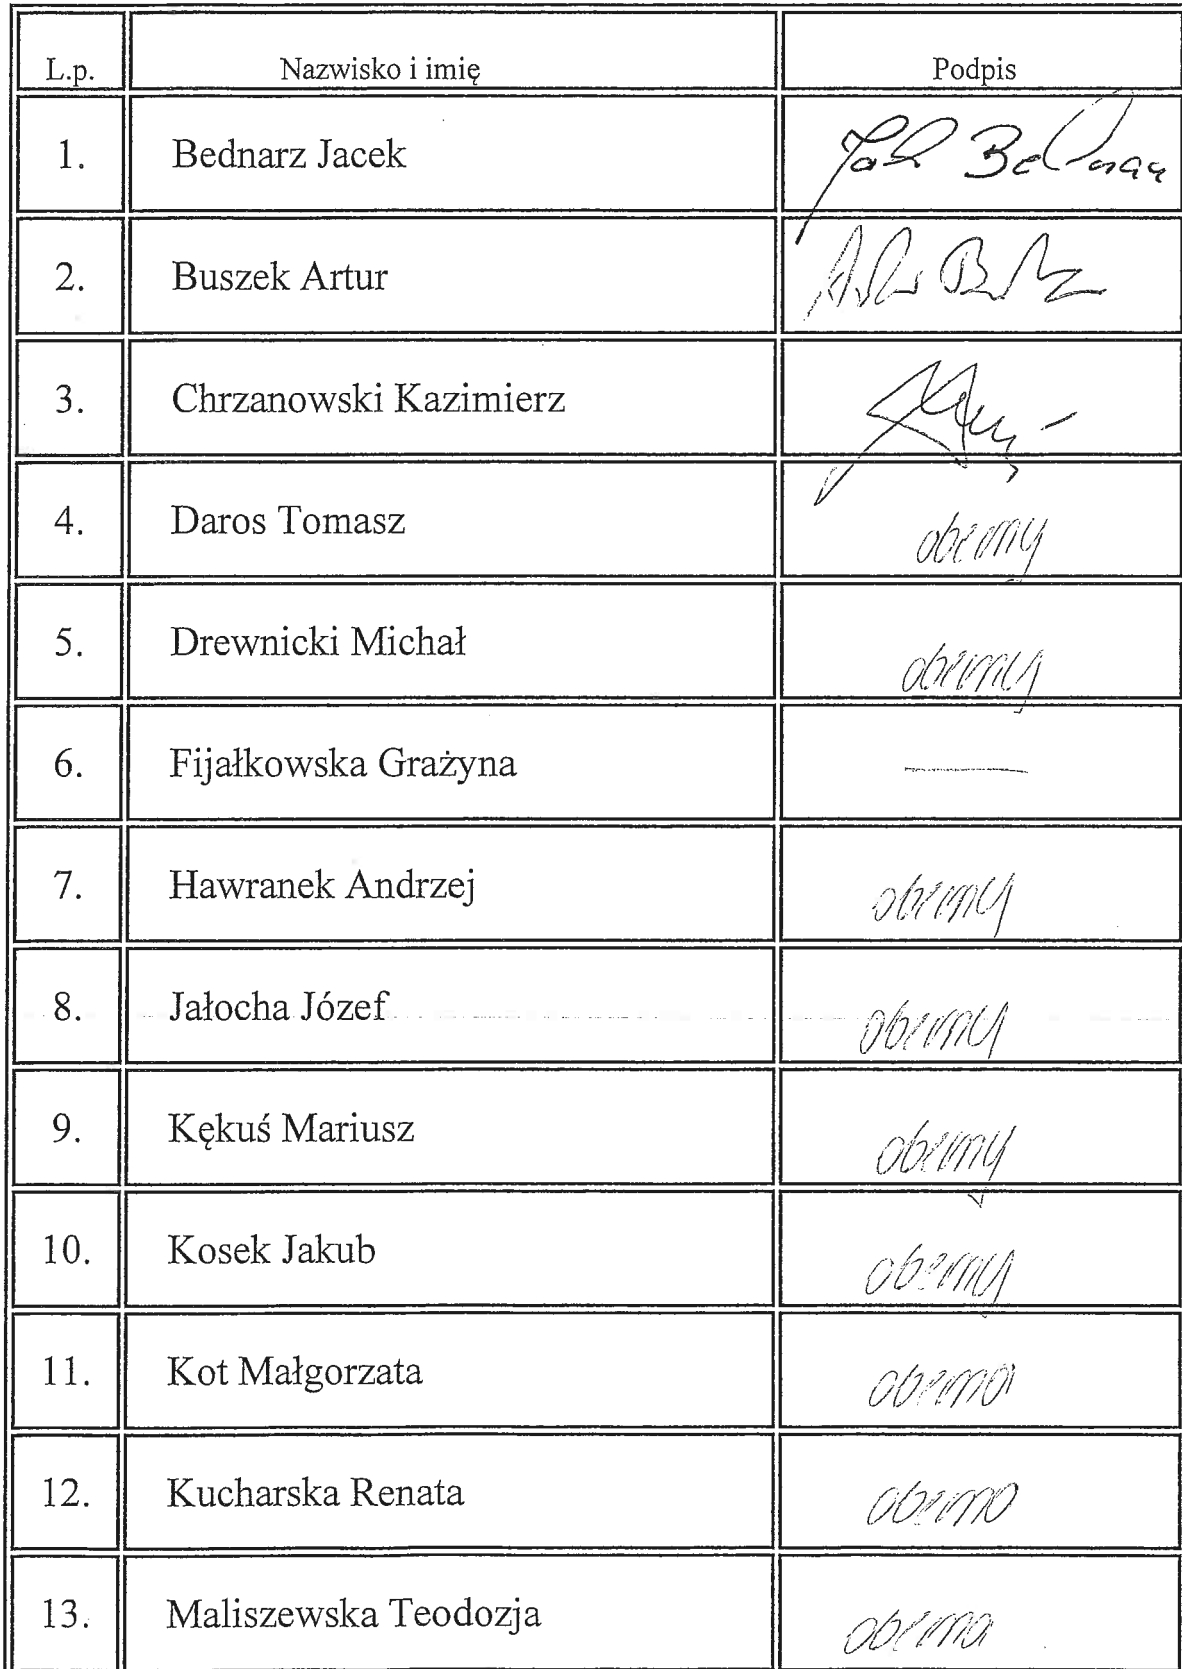 L.p. Nazwisko i imię Podpis
1. Bednarz Jacek
2. Buszek Artur
3. Chrzanowski Kazimierz
4. Daros Tomasz obecny
5. Drewnicki Michał obecny
6. Fijałkowska Grażyna —
7. Hawranek Andrzej obecny
8. Jałocha Józef obecny
9. Kękuś Mariusz obecny
10. Kosek Jakub obecny
11. Kot Małgorzata obecna
12. Kucharska Renata obecna
13. Maliszewska Teodozja obecna